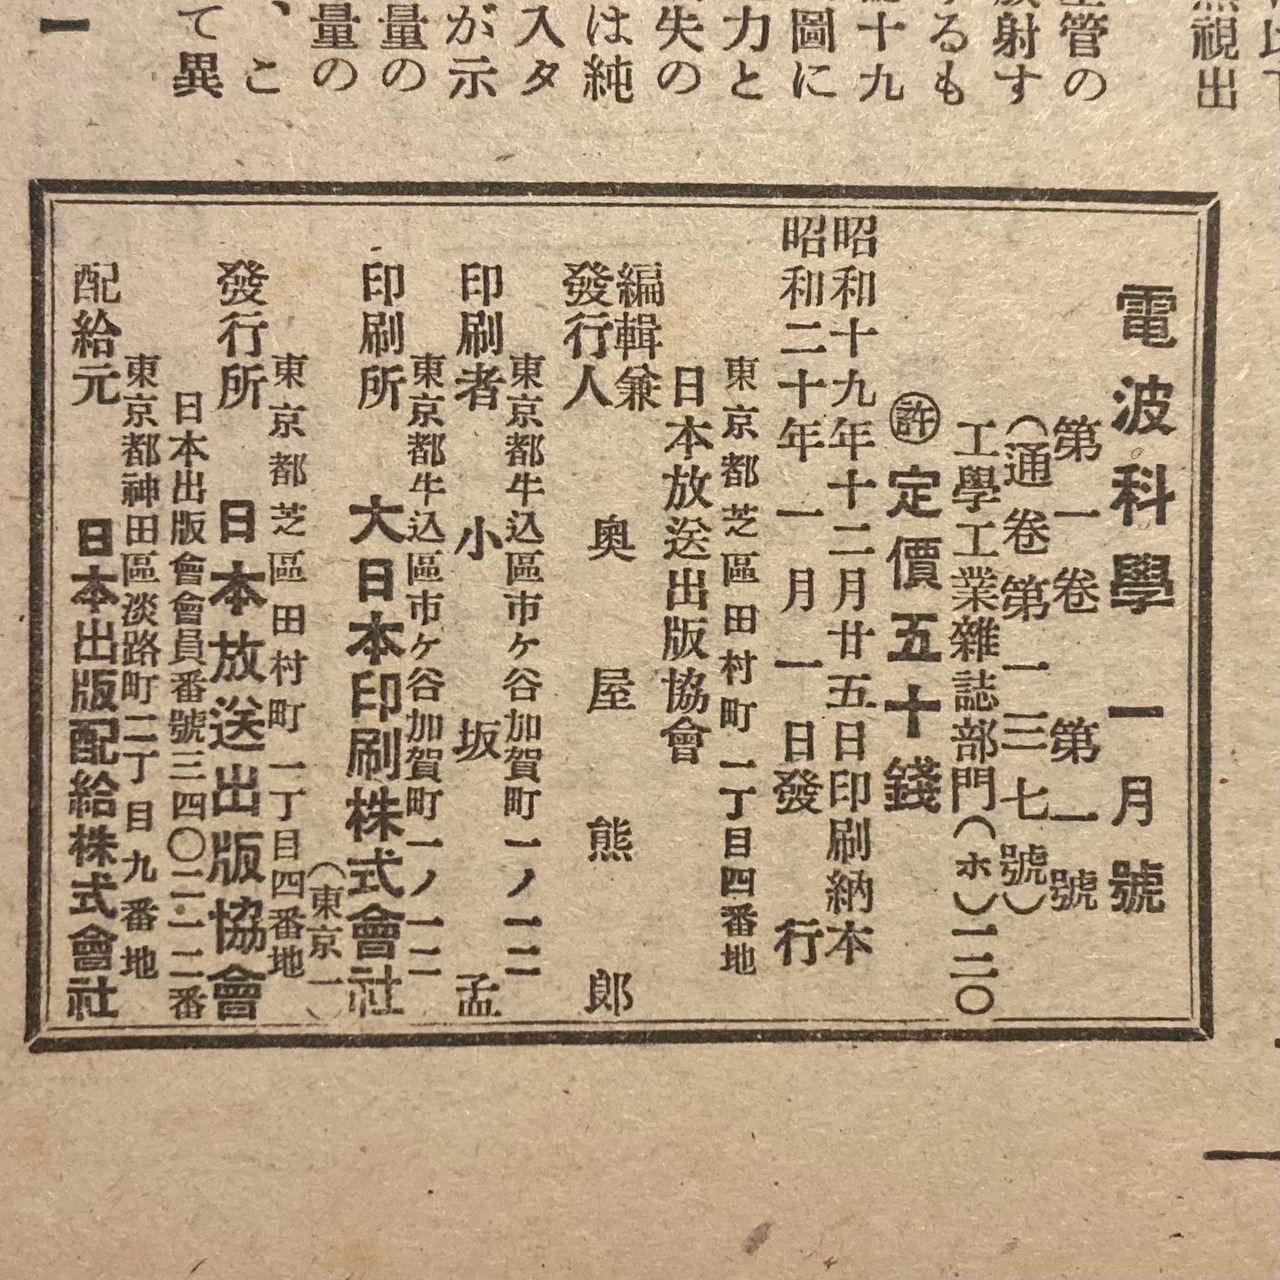 照視出
空管の
放射す
するも
十九
圖に
力と
失の
は純
スタ
が示
量の
量の
、こ
て異
一
電波科學 一月號
第一卷 第一號
(通卷第一三七號)
工學工業雜誌部門(ホ)一二〇
㊟定價五十錢
昭和十九年十二月廿五日印刷納本
昭和二十年一月一日發行
東京都芝區田村町一丁目四番地
日本放送出版協會
編輯兼
發行人 奧屋熊郎
東京都牛込區市ケ谷加賀町一ノ一二
印刷者 小坂孟
東京都牛込區市ケ谷加賀町一ノ一二
印刷所 大日本印刷株式會社
(東京一)
東京都芝區田村町一丁目四番地
發行所 日本放送出版協會
日本出版會會員番號三四〇二一二番
東京都神田區淡路町二丁目九番地
配給元 日本出版配給株式會社